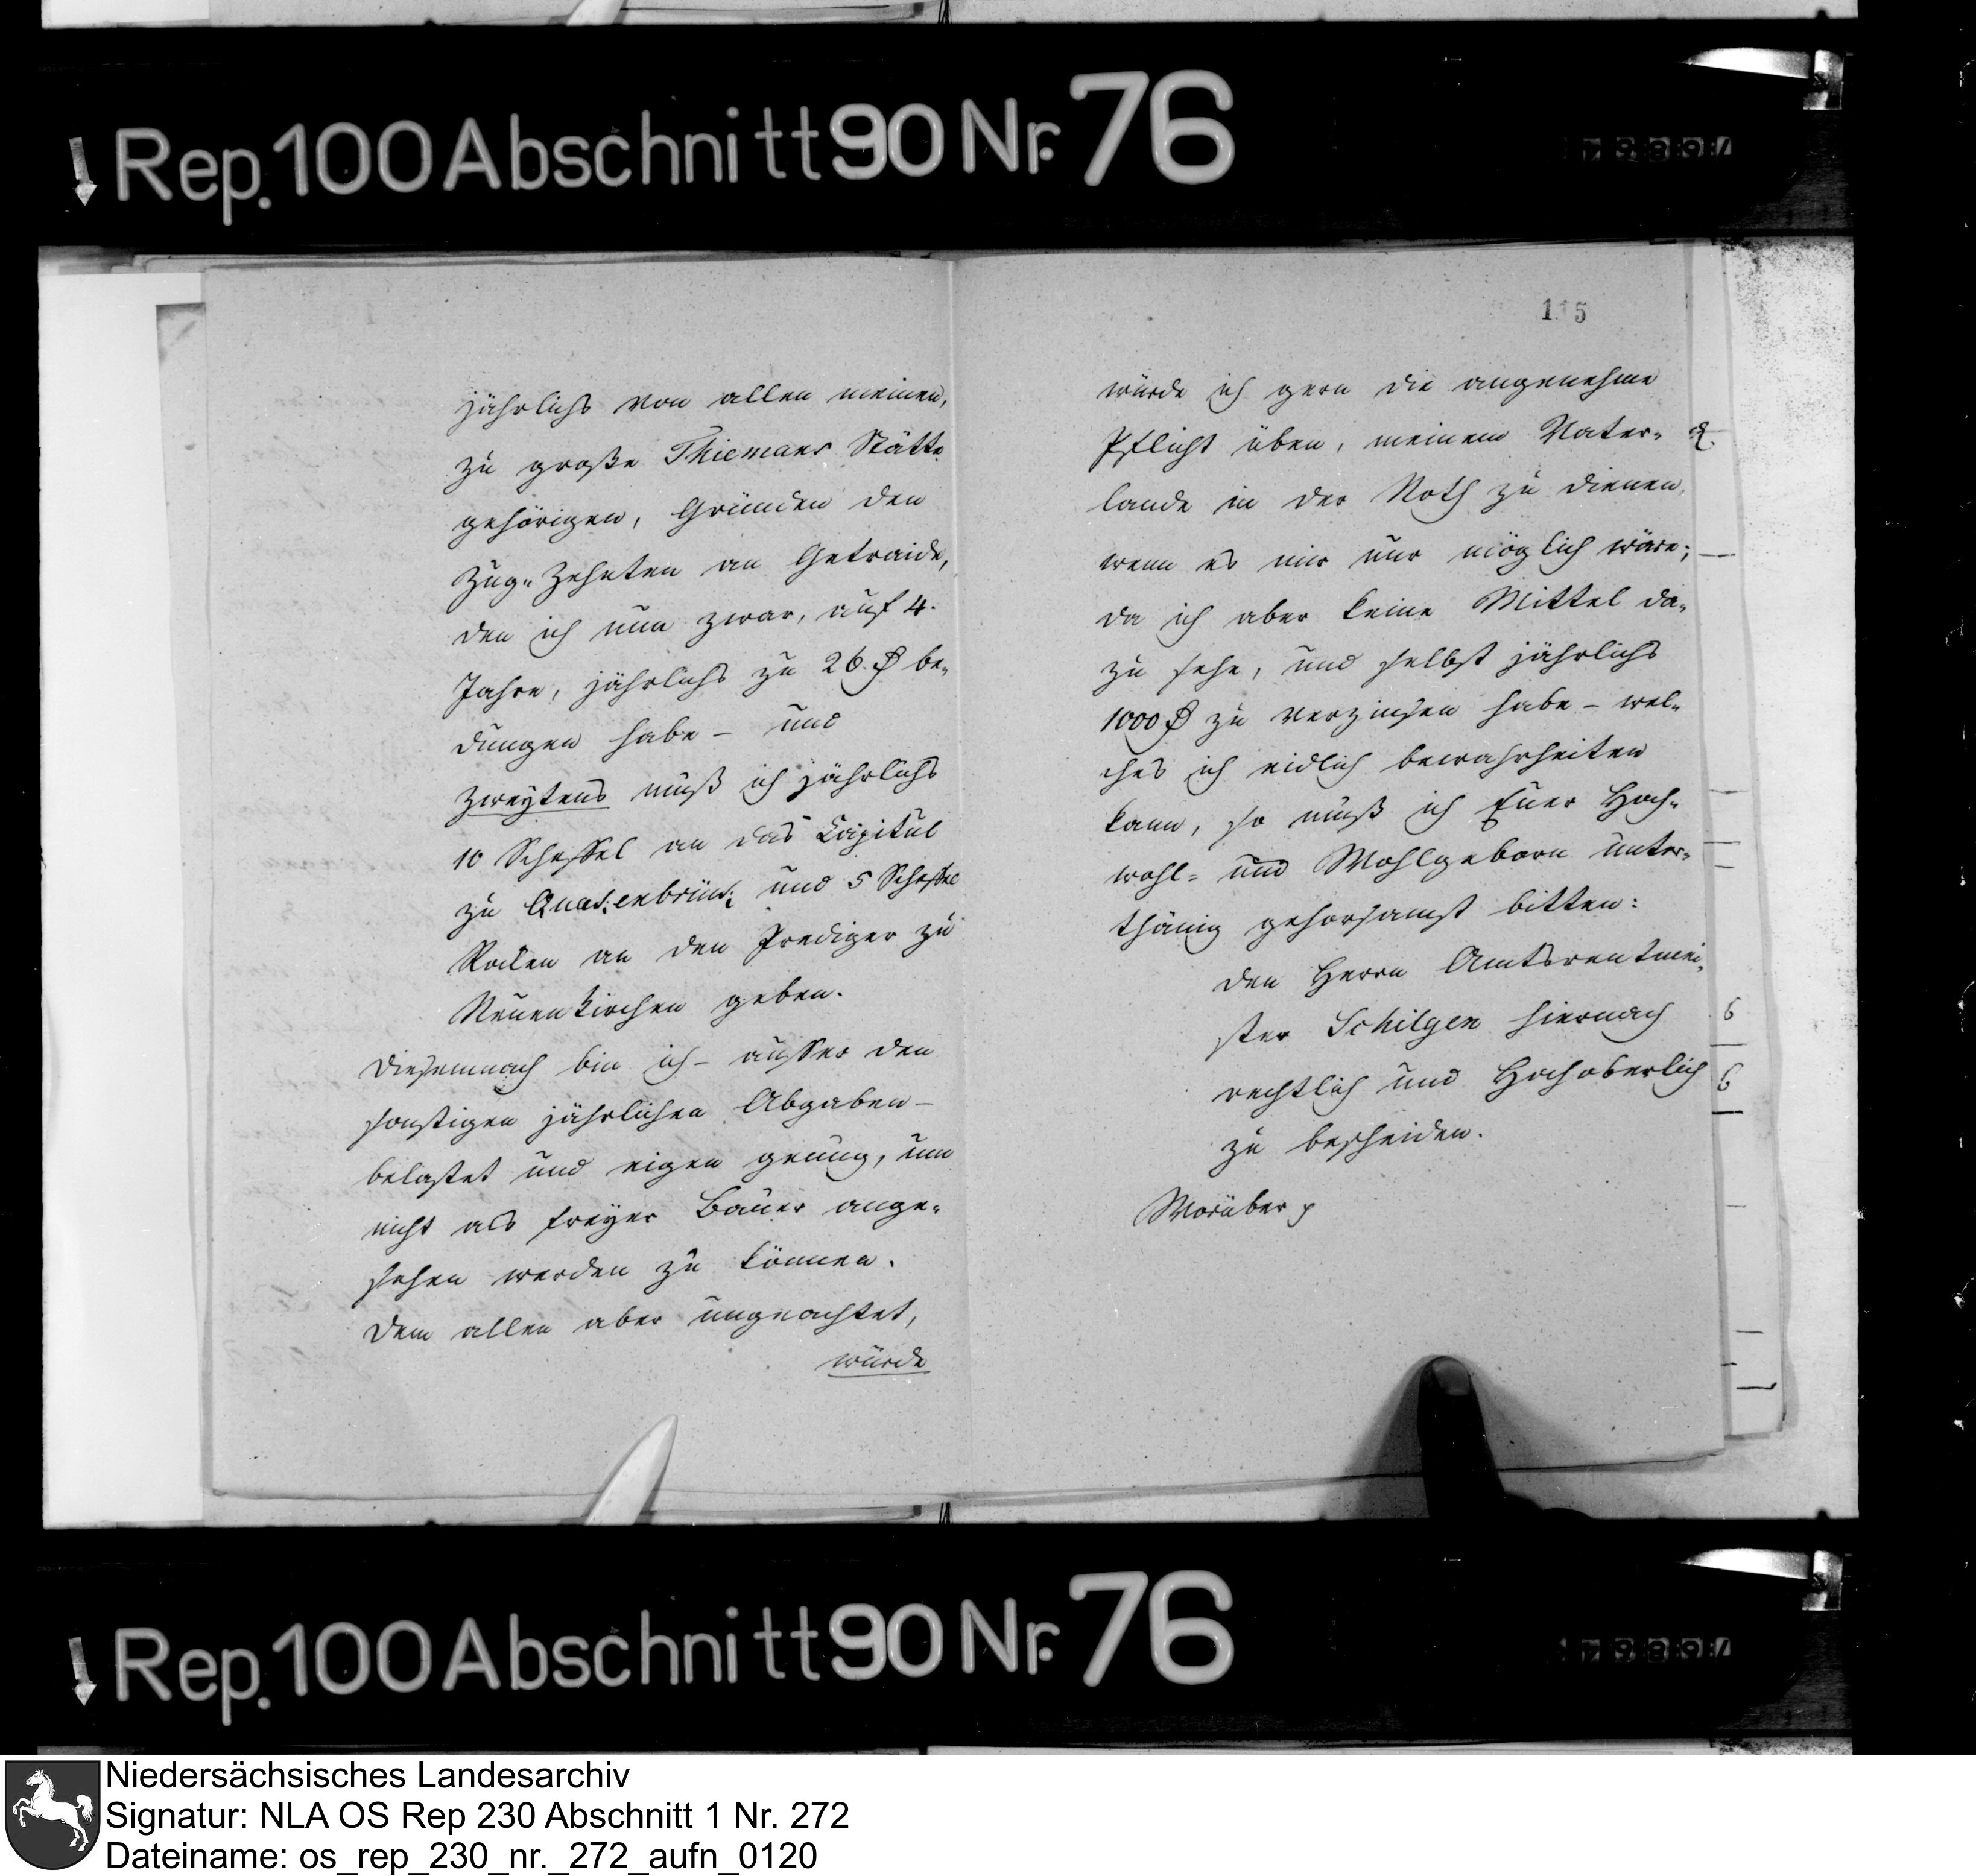 Rep. 100 Abschnitt 90 Nr. 76
jährlichs von allen meinen,
zu große Thiemans Stätte
gehörigen, Gründen den
Zug-Zehnten an Getraide,
den ich nun zwar, auf 4.
Jahre, jährlichs zu 26 rt be-
dungen habe - und
zweytens muß ich jährlichs
10 Scheffel an das Capitul
zu und 5 Scheffel
Rocken an den Prediger zu
Neuenkirchen geben.
Diesemnach bin ich - ausser den
sonstigen jährlichen Abgaben -
belastet und eigen genug, um
nicht als freyer Bauer ange-
sehen werden zu können.
Dem allen aber ungeachtet,
würde
115
würde ich gern die angenehme
Pflicht üben, meinem Vater-
lande in der Noth zu dienen,
wenn es mir nur möglich wäre;
da ich aber keine Mittel da-
zu sehe, und selbst jährlichs
1000 rt zu verzinsen habe - wel-
ches ich eidlich bewahrheiten
kann, so muß ich Euer Hoch-
wohl- und Wohlgeborn unter-
thänig gehorsamst bitten:
den Herrn Amtsrentmei-
ster Schilgen hiernach
rechtlich und Hochoberlich
zu bescheiden.
Worüber
Rep. 100 Abschnitt 90 Nr. 76
Niedersächsisches Landesarchiv
Signatur: NLA OS Rep 230 Abschnitt 1 Nr. 272
Dateiname: os_rep_230_nr._272_aufn_0120